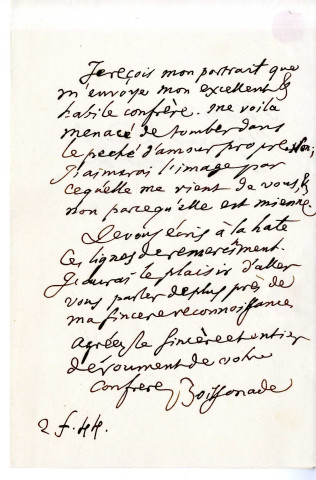 Je reçois mon portrait que
m'envoye mon excellent &
habile confrère. me voila
menacé de tomber dans
le peché d'amour propre. Non,
J'aimerai l'image par
cequ'elle me vient de vous, &
non parcequ'elle est mienne.
Je vous écris à la hate
ces lignes de remerciment.
J'aurai le plaisir d'aller
vous parler de plus près de
ma sincere reconnoissance
agréez le sincère et entier
dévoument de votre
Confrere Boissonade
2 f. 44.